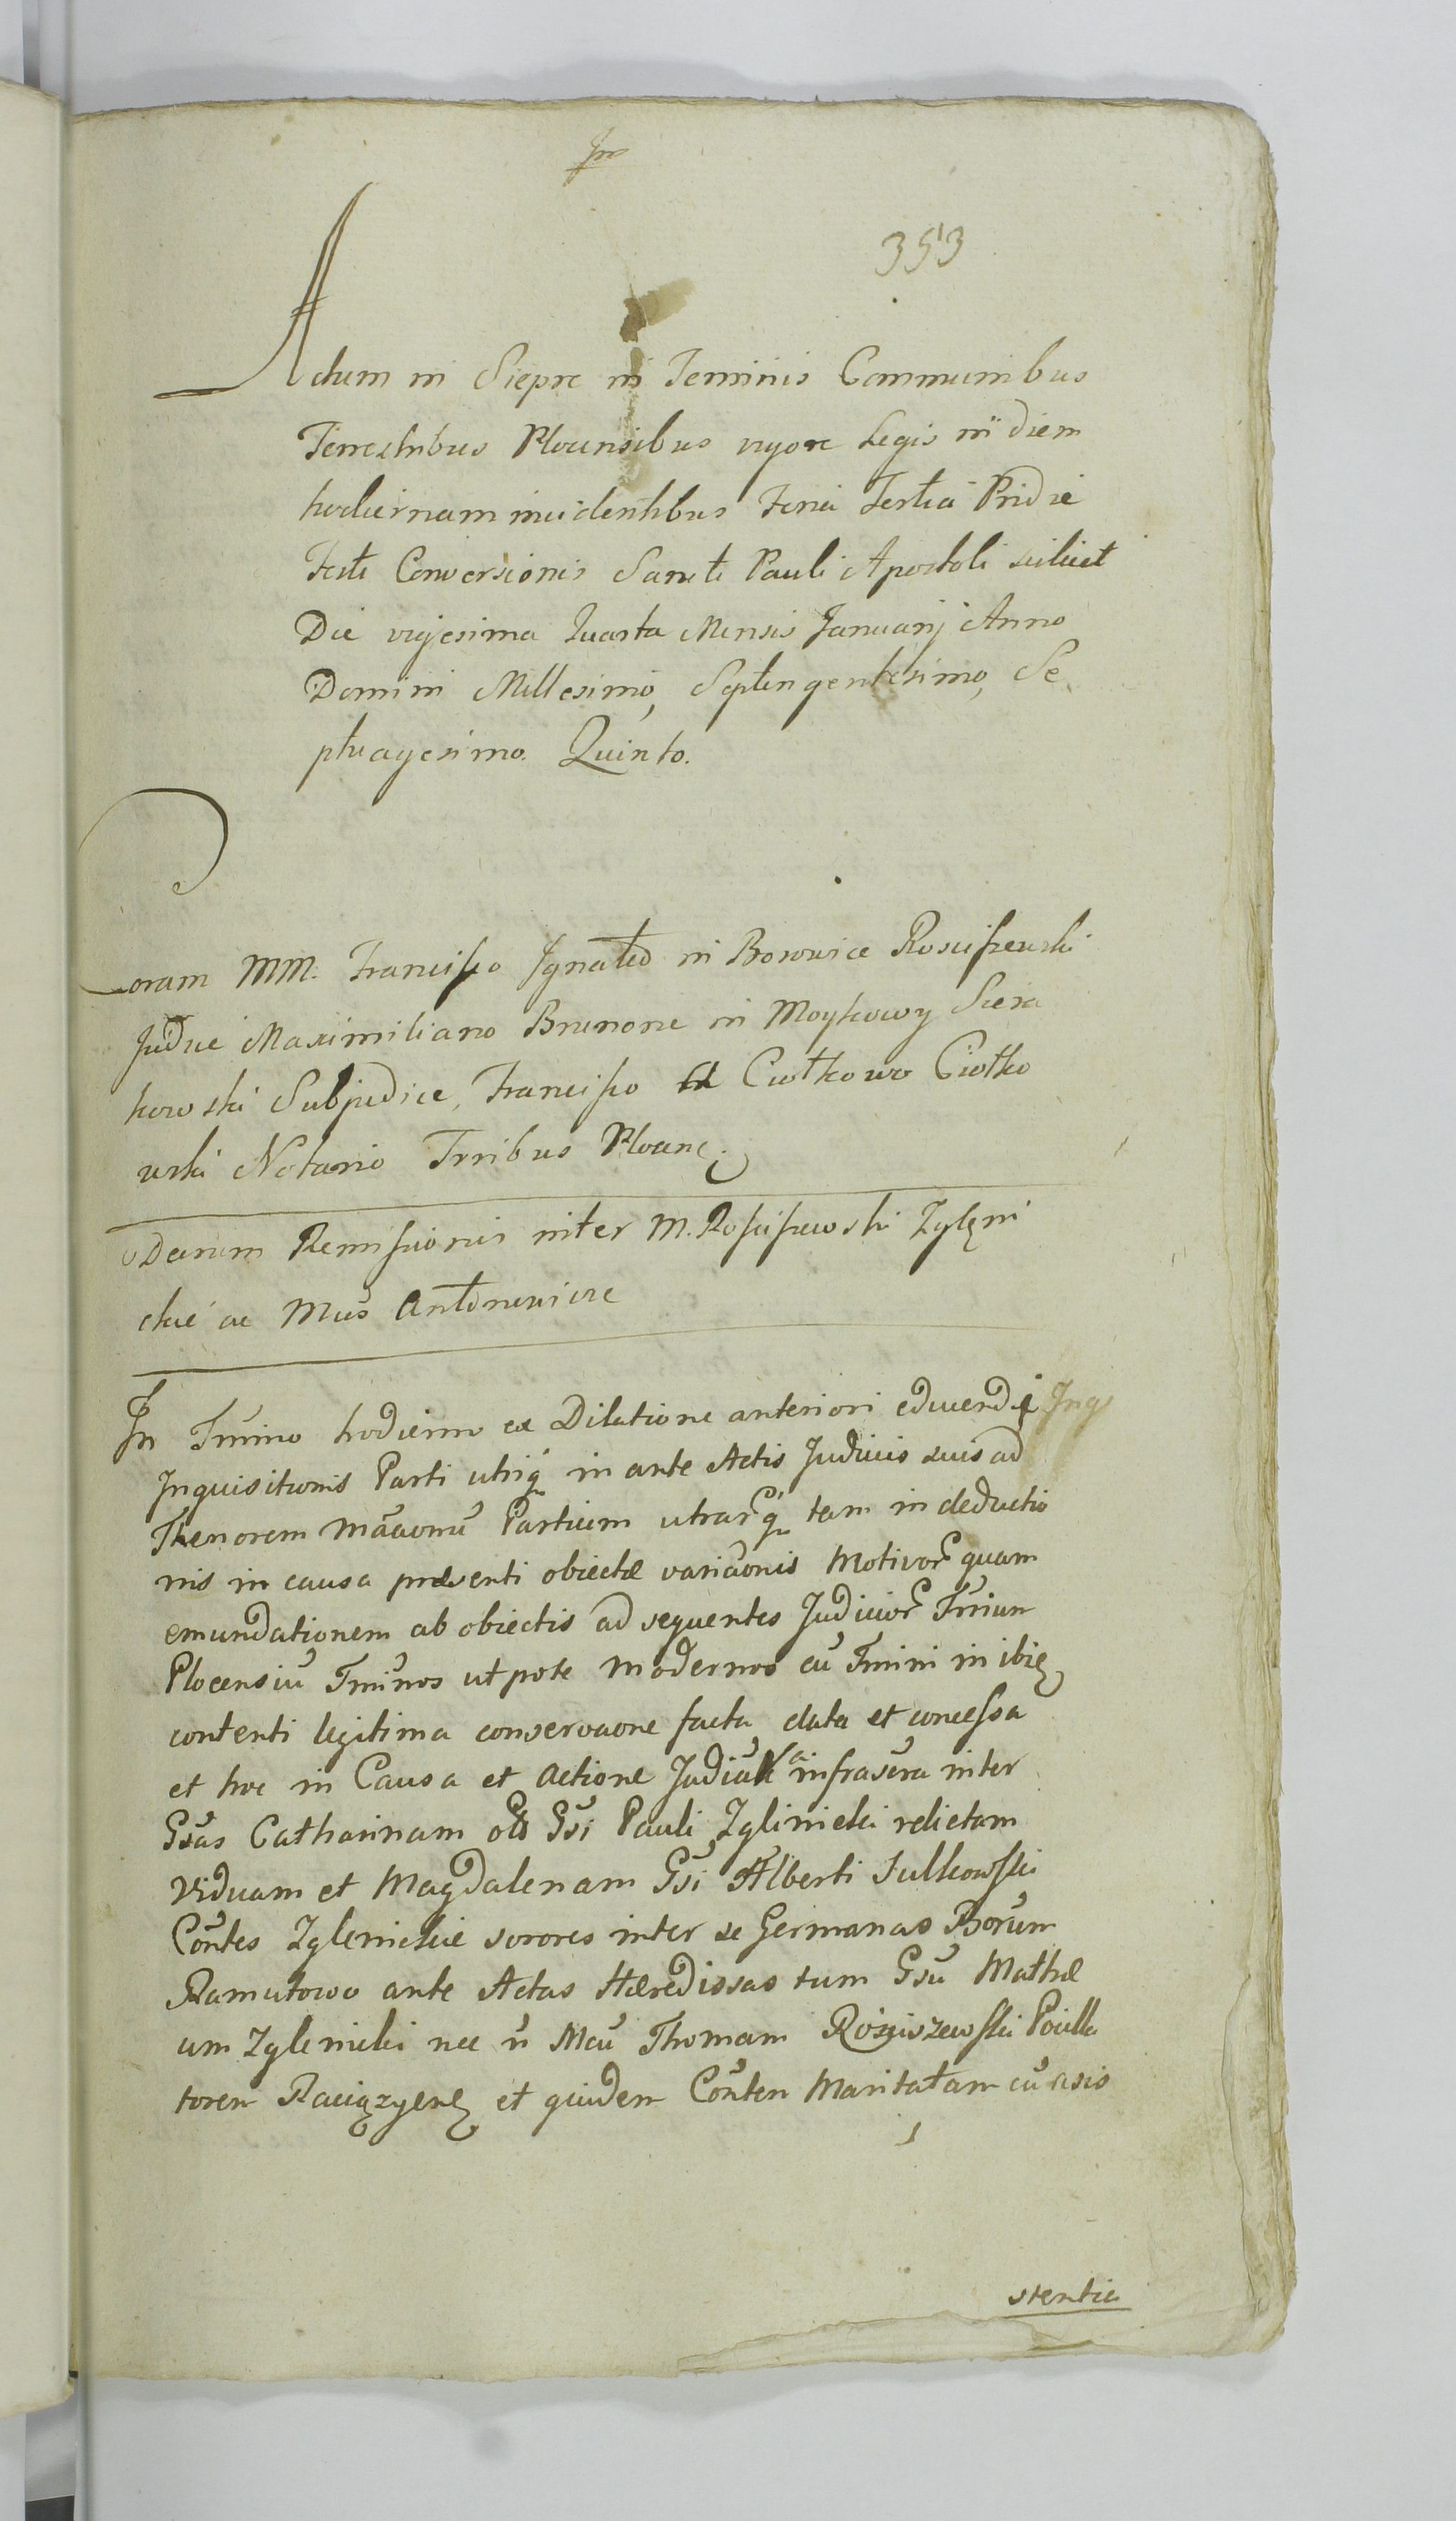 353
Actum in Siepre in Terminis Communibus
Terrestribus Plocensibus vigore Legis in diem
hodiernam incidentibus Feria Tertia Pridie
Festi Conversionis Sancti Pauli Apostoli scilicet
Die vigesima Quarta Mensis Januarij Anno
Domini Millesimo, Septingentesimo, Se
ptuagesimo. Quinto.
Coram MM. Francisco Ignatio in Borowice Rosciszewski
Judice Maximiliano Brunone in Moykowy Siera
kowski Subjudice, Francisco in Ciołkowo Ciołko
wski Notario Trribus Plocens.
Decrum Remissionis inter M. Rosciszewski Zgleni
ckie ac Mus Antoneviore
In Tmino hodierno ex Dilatione anteriori educendi Inq
Inquisitionis Parti utriq in ante Actis Judiciis suis ad
Thenorem Mãaonũ Partium utrarq tam in deductio
nis in causa præsenti obiectæ variaonis Motivor quam
emundationem ab obiectis ad sequentes Judicior Trrium
Plocensiũ Tminos utpote modernos cũ Tmini in ibi
contenti legitima conservaone facta, data et concessa
et hoc in Causa et Actione Judicili infrascra inter
Gsas Catharinam olt Gsi Pauli Zglinicki relictam
Viduam et Magdalenam Gsi Alberti Sulkowski
Contes Zglenickie sorores inter se Germanas Bonrum
Ramutowo ante Actas Hæredissas tum Gsũ Mathæ
um Zglenicki nec ñ Mcũ Thomam Rosciszewski Pocilla
torem Raciązgens et quidem Conten Maritatam cũ asis
stentia